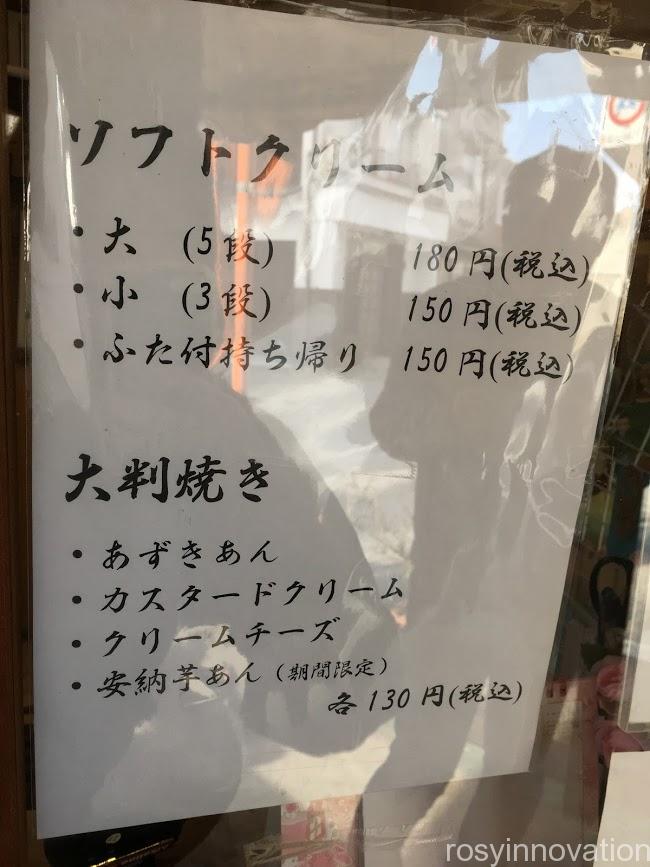 ソフトクリーム
・大 (5段) 180円(税込)
・小 (3段) 150円(税込)
・ふた付持ち帰り 150円(税込)
大判焼き
・あずきあん
・カスタードクリーム
・クリームチーズ
・安納芋あん(期間限定)
各130円(税込)
rosyinnovation